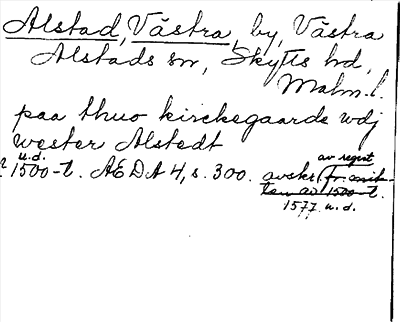 Alstad, Västra, by, Västra
Alstads sn, Skytts hd,
Malm. l.
paa thuo kirckegaarde wdj
wester Alstedt
u.d.
1500-t. AEDA 4, s. 300. avskr. av regist
fr. mit-
ten av 1500-t.
1577 u.d.